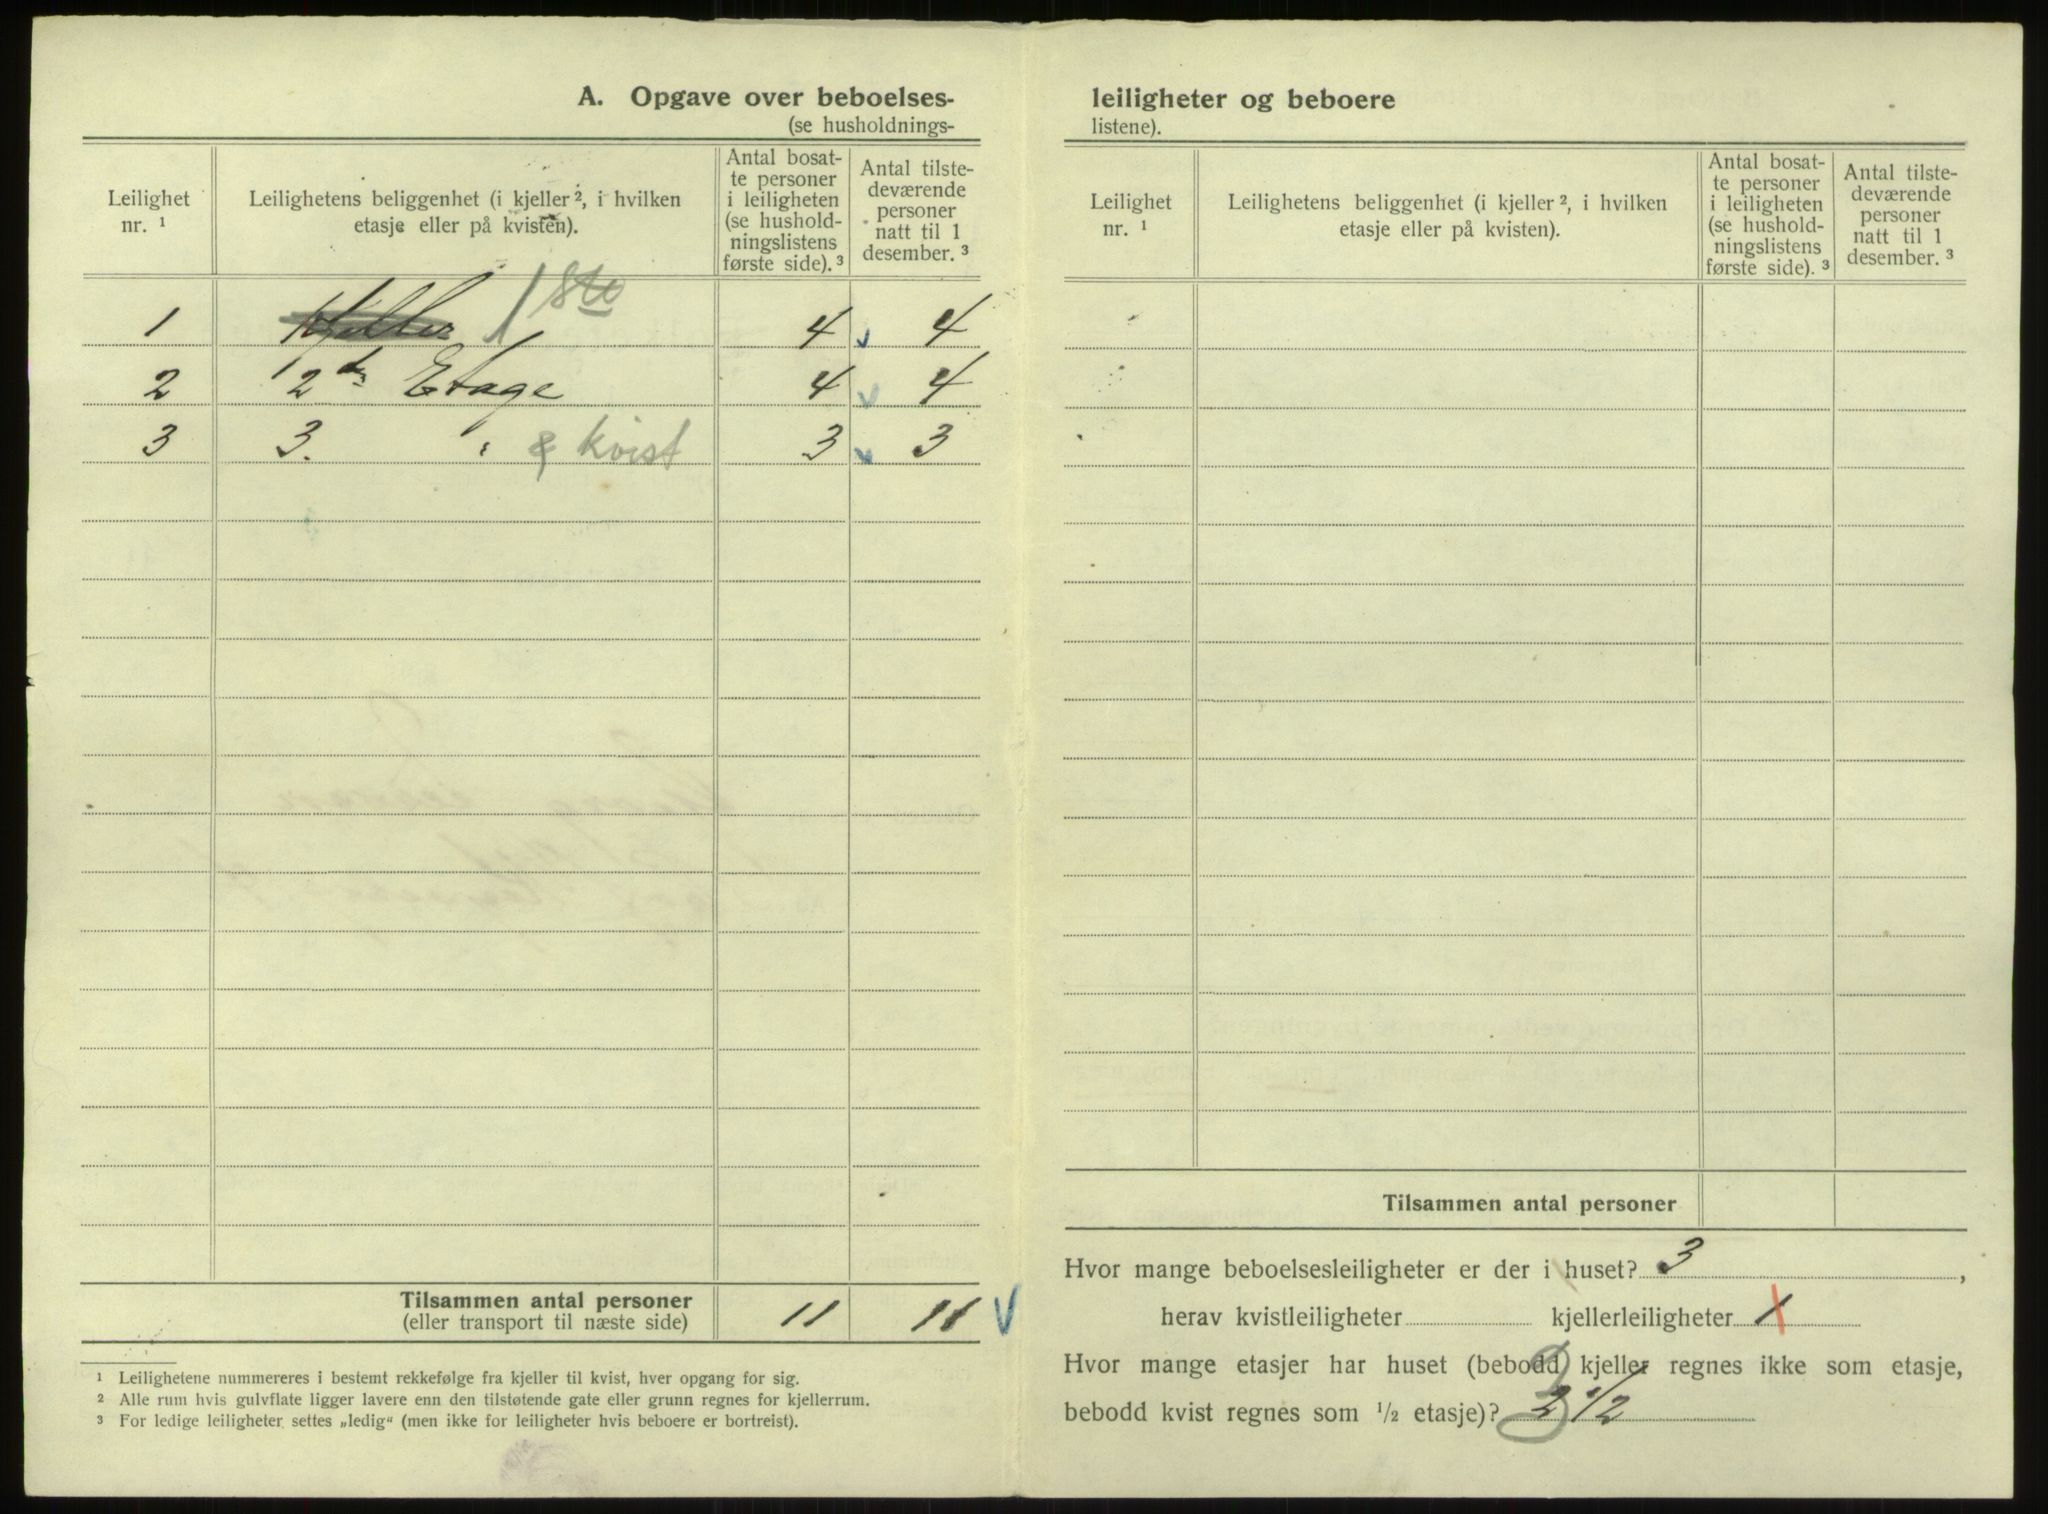 A. Opgave over beboelses-
(se husholdnings-
Leilighet
nr. ¹
Leilighetens beliggenhet (i kjeller ², i hvilken
etasje eller på kvisten).
Antal bosat-
te personer
i leiligheten
(se hushold-
ningslistens
første side). ³
Antal tilste-
deværende
personer
natt til 1
desember. ³
1 Kjeller 1ste 4 4
2 2den Etage 4 4
3 3. " & kvist 3 3
Tilsammen antal personer 11 11
(eller transport til næste side)
¹ Leilighetene nummereres i bestemt rekkefølge fra kjeller til kvist, hver opgang for sig.
² Alle rum hvis gulvflate ligger lavere enn den tilstøtende gate eller grunn regnes for kjellerrum.
³ For ledige leiligheter settes „ledig“ (men ikke for leiligheter hvis beboere er bortreist).
leiligheter og beboere
listene).
Leilighet
nr. ¹
Leilighetens beliggenhet (i kjeller ², i hvilken
etasje eller på kvisten).
Antal bosat-
te personer
i leiligheten
(se hushold-
ningslistens
første side). ³
Antal tilste-
deværende
personer
natt til 1
desember. ³
Tilsammen antal personer
Hvor mange beboelsesleiligheter er der i huset? 3 ,
herav kvistleiligheter kjellerleiligheter 1
Hvor mange etasjer har huset (bebodd kjeller regnes ikke som etasje,
bebodd kvist regnes som ½ etasje)? 2 1/2